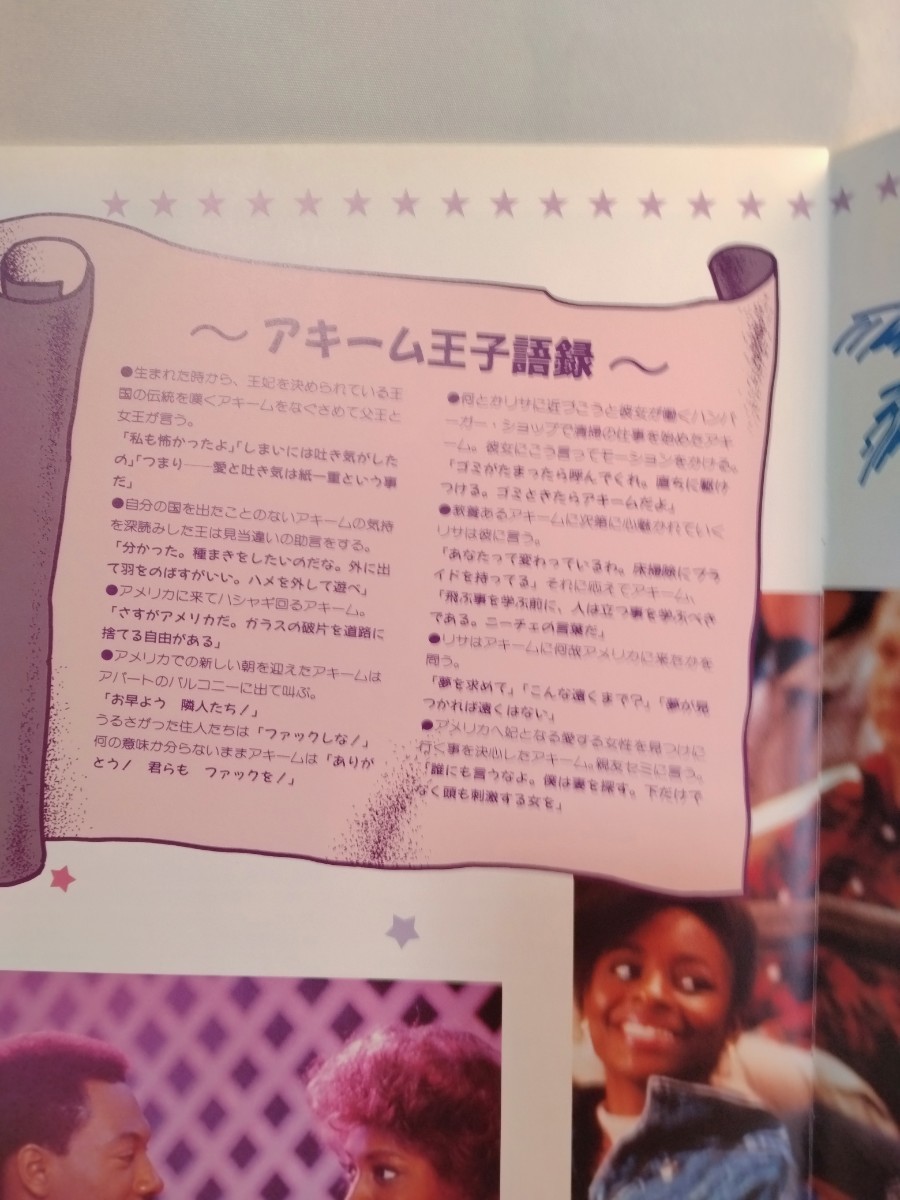 ～ アキーム王子語録 ～
●生まれた時から、王妃を決められている王
国の伝統を嘆くアキームをなぐさめて父王と
女王が言う。
「私も怖かったよ」「しまいには吐き気がした
の」「つまり――愛と吐き気は紙一重という事
だ」
●自分の国を出たことのないアキームの気持
を深読みした王は見当違いの助言をする。
「分かった。種まきをしたいのだな。外に出
て羽をのばすがいい。ハメを外して遊べ」
●アメリカに来てハシャギ回るアキーム。
「さすがアメリカだ。ガラスの破片を道路に
捨てる自由がある」
●アメリカでの新しい朝を迎えたアキームは
アパートのバルコニーに出て叫ぶ。
「お早よう　隣人たち！」
うるさがった住人たちは「ファックしな！」
何の意味か分らないままアキームは「ありが
とう！　君らも　ファックを！」
●何とかリサに近づこうと彼女が働くハンバ
ーガー・ショップで清掃の仕事を始めたアキ
ーム。彼女にこう言ってモーションをかける。
「ゴミがたまったら呼んでくれ。直ちに駆け
つける。ゴミときたらアキームだよ」
●教養あるアキームに次第に心魅かれていく
リサは彼に言う。
「あなたって変わっているわ。床掃除にプラ
イドを持ってる」それに応えてアキーム、
「飛ぶ事を学ぶ前に、人は立つ事を学ぶべき
である。ニーチェの言葉だ」
●リサはアキームに何故アメリカに来たかを
問う。
「夢を求めて」「こんな遠くまで？」「夢が見
つかれば遠くはない」
●アメリカへ妃となる愛する女性を見つけに
行く事を決心したアキーム。親友セミに言う。
「誰にも言うなよ。僕は妻を探す。下だけで
なく頭も刺激する女を」